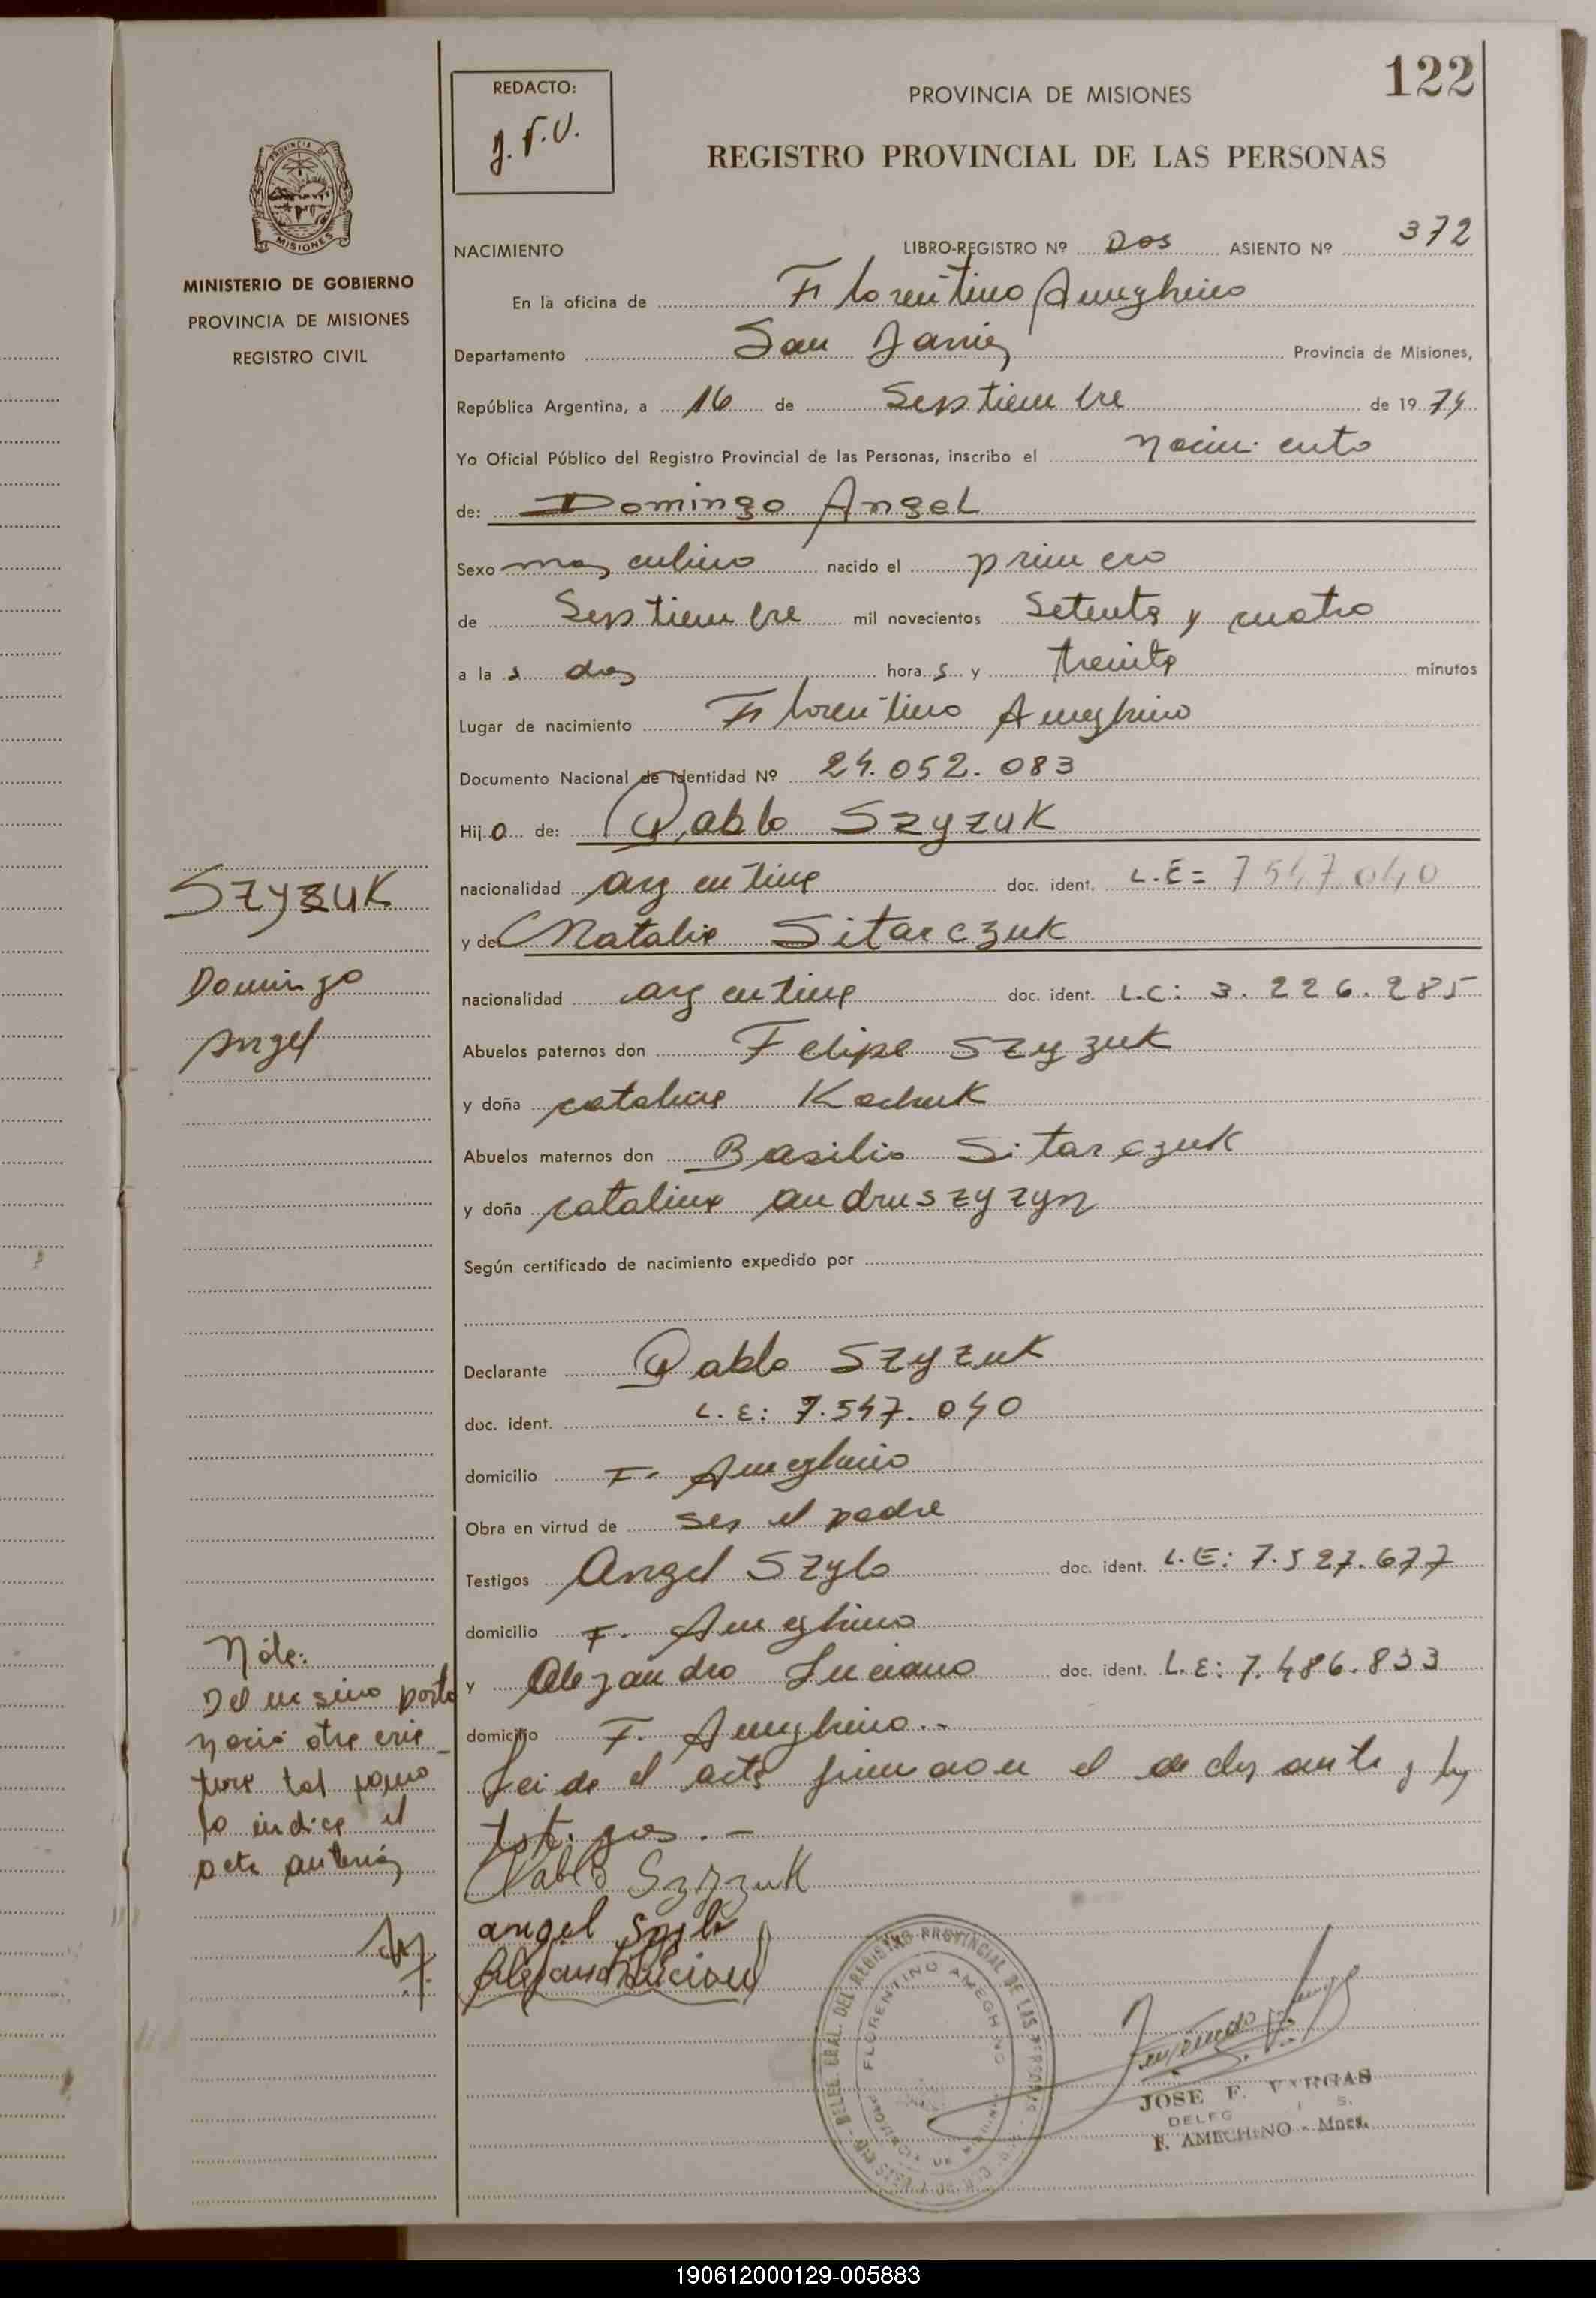 122
REDACTO:
J.F.V.
PROVINCIA DE MISIONES
REGISTRO PROVINCIAL DE LAS PERSONAS
MISIONES
MINISTERIO DE GOBIERNO
PROVINCIA DE MISIONES
REGISTRO CIVIL
NACIMIENTO LIBRO-REGISTRO Nº Dos ASIENTO Nº 372
En la oficina de Florentino Ameghino
Departamento San Javier Provincia de Misiones,
República Argentina, a 16 de Septiembre de 1974
Yo Oficial Público del Registro Provincial de las Personas, inscribo el nacimiento
de: Domingo Angel
Sexo masculino nacido el primero
de Septiembre mil novecientos Setenta y cuatro
a las dos horas y treinta minutos
Lugar de nacimiento Florentino Ameghino
Documento Nacional de Identidad Nº 24.052.083
Hijo de: Pablo Szyzuk
nacionalidad argentina doc. ident. L.E= 7547040
y de Natalia Sitarczuk
nacionalidad argentina doc. ident. L.C: 3.226.285
Abuelos paternos don Felipe Szyzuk
y doña catalina Kachuk
Abuelos maternos don Basilio Sitarczuk
y doña catalina andruszyzyn
Según certificado de nacimiento expedido por
Declarante Pablo Szyzuk
doc. ident. L.E: 7.547.040
domicilio F. Ameghino
Obra en virtud de ser el padre
Testigos Angel Szylo doc. ident. L.E: 7.527.677
domicilio F. Ameghino
y Alejandro Luciano doc. ident. L.E: 7.486.833
domicilio F. Ameghino.-
Leida el acta firmaron el declarante y los
testigos.-
Pablo Szyzuk
angel Szylo
Alejandro Luciano
SZYZUK
Domingo
Angel
Nota:
Del mismo parto
nació otra cria_
tura tal como
lo indica el
acta anterior
DELEG. GRAL. DEL REGISTRO PROVINCIAL DE LAS PERSONAS
FLORENTINO AMEGHINO
PROVINCIA DE
JOSE F. VARGAS
F. AMEGHINO - Mnes.
190612000129-005883